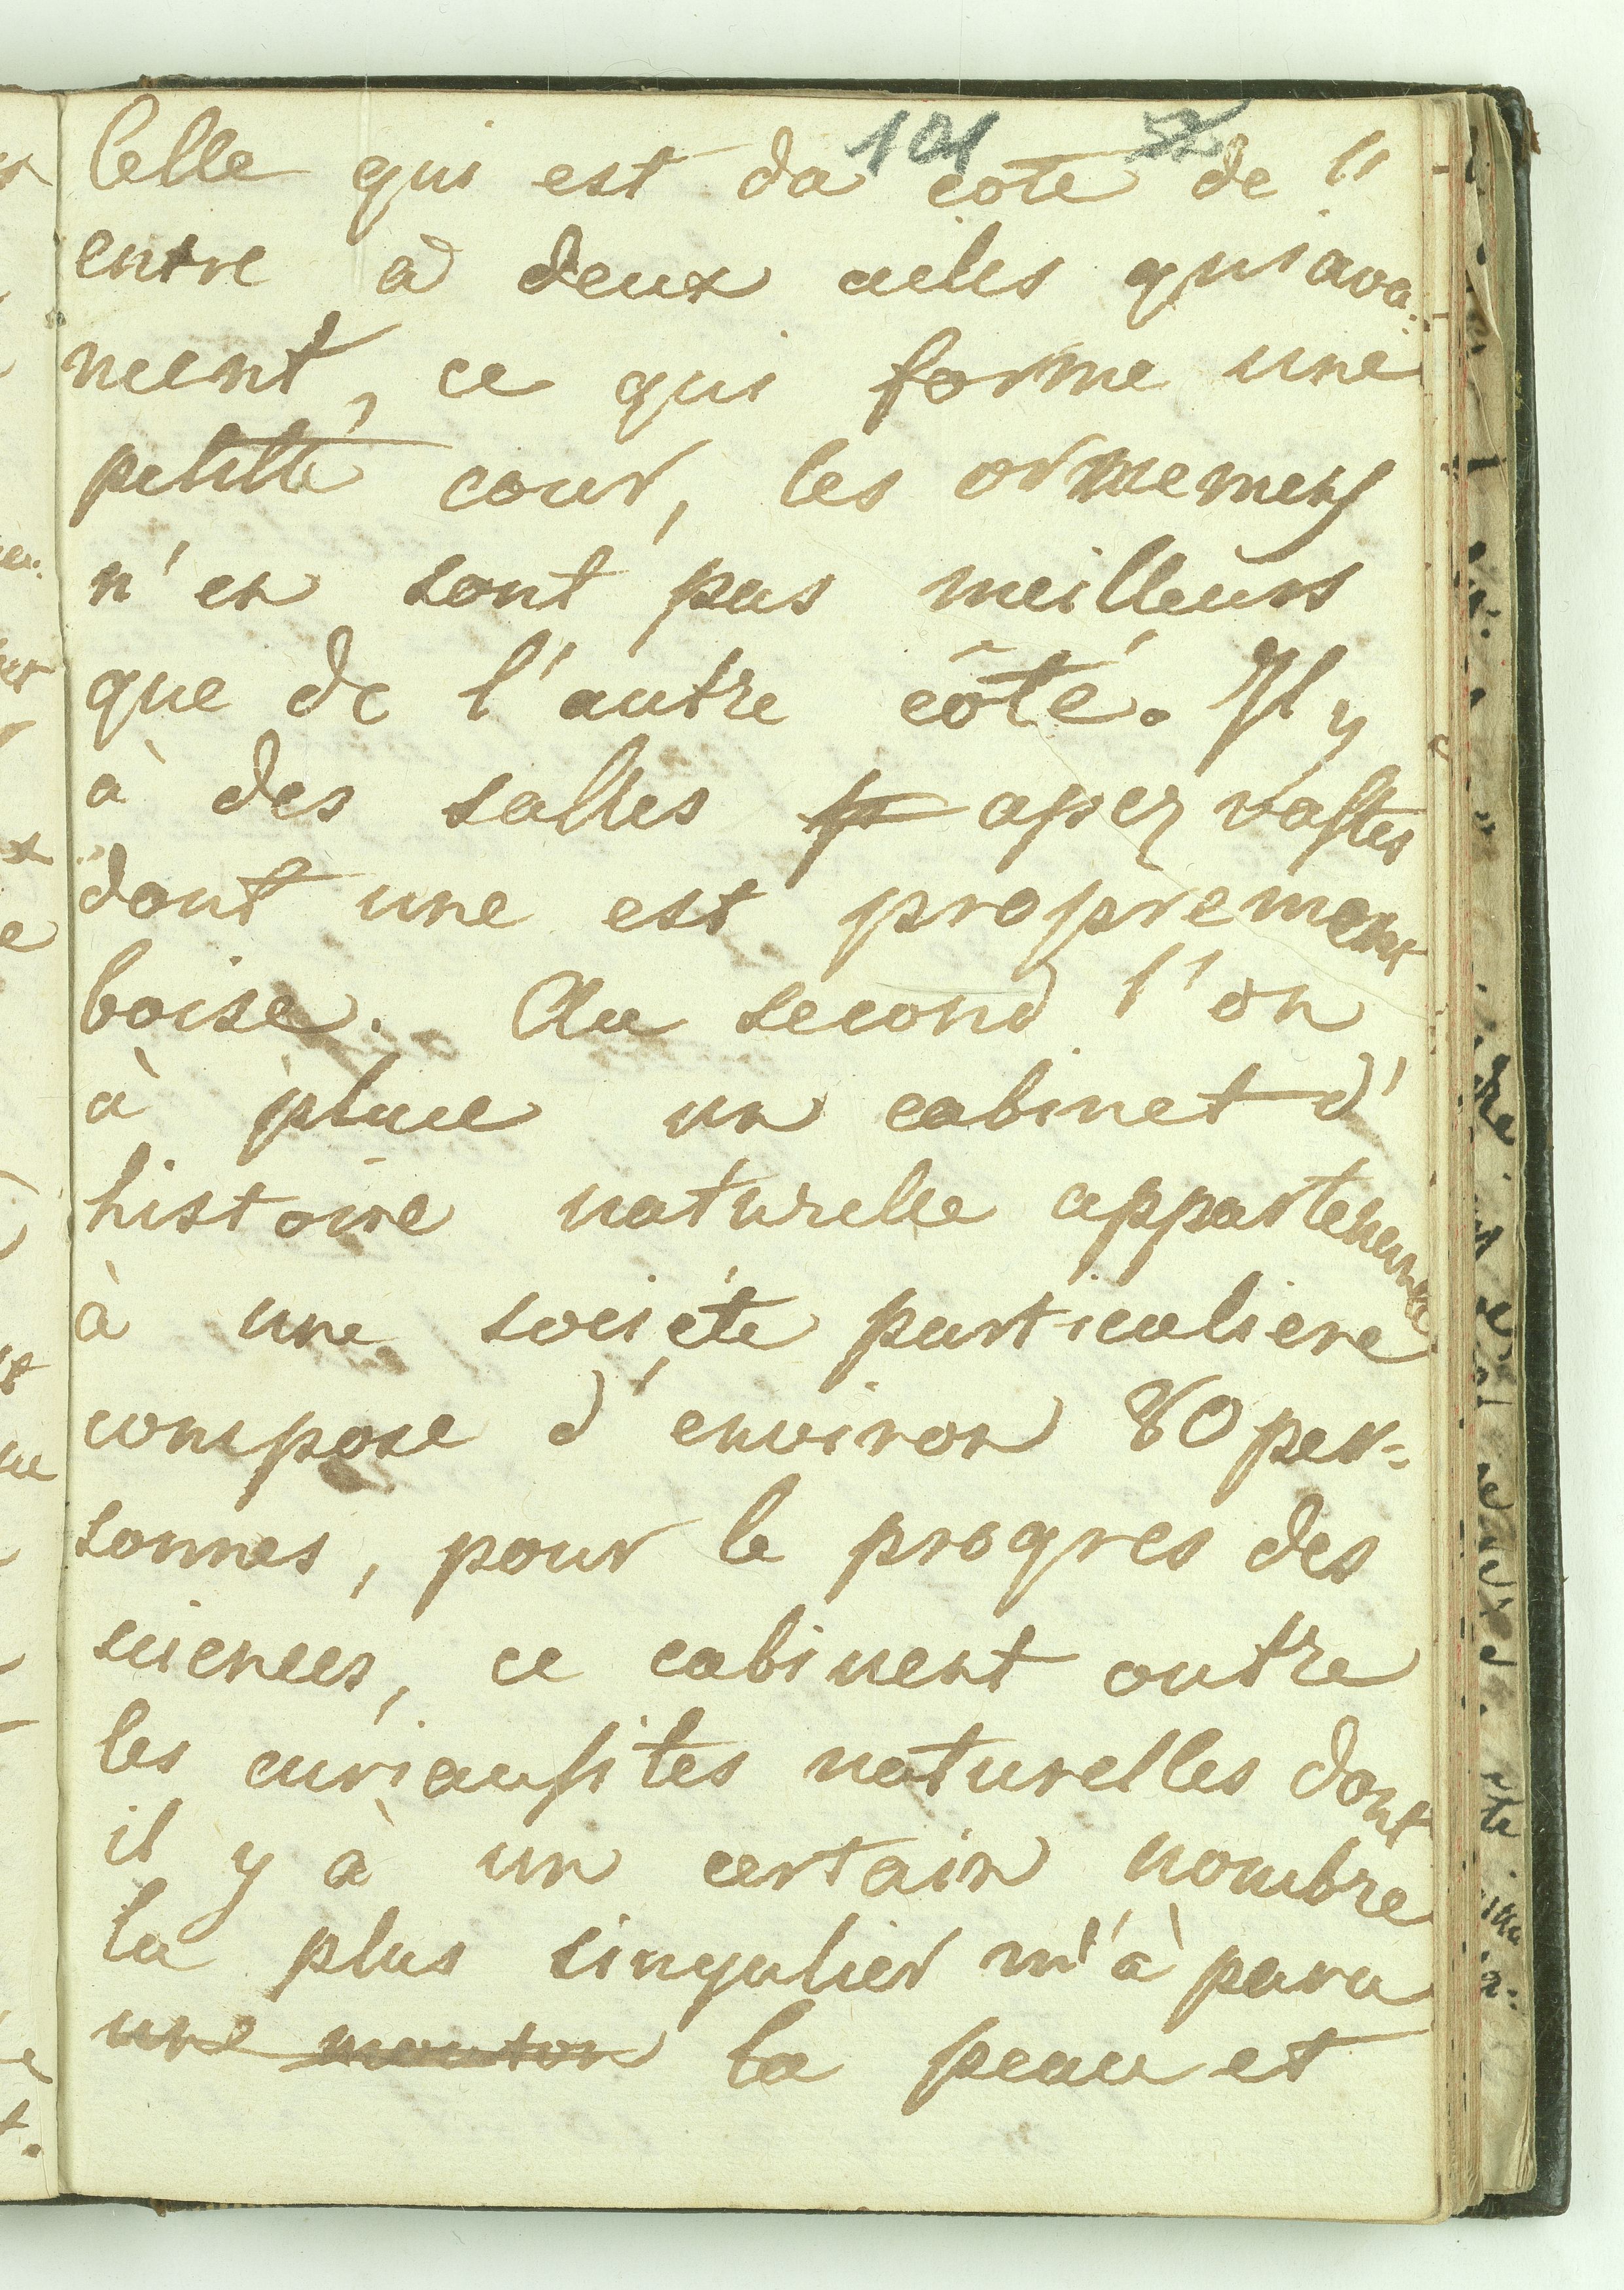 101 52
Celle qui est da coté de l'
entre a deux aeles qui ava-
ncent, ce qui forme une
petitte cour, les ornemens
n'en sont pas meilleurs
que de l'autre côté. Il y
à des salles assez vastes
dont une est proprement
boisé. Au second l'on
à place un cabinet d'
histoire naturelle appartenente
à une societé particuliere
compose d'environ 80 per-
sonnes, pour le progres des
sciences, ce cabinent outre
les curiausites naturelles dont
il y à un certain nombre
la plus singulier m'à paru
une mouton la peau et